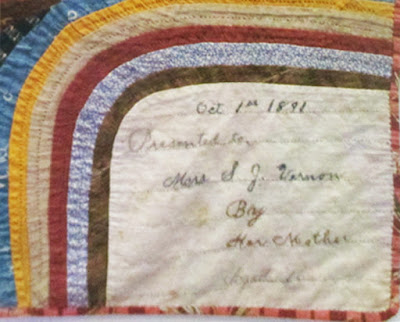 Oct 1st 1891
Presented to
Mrs S. J. Vernon
By
Her Mother